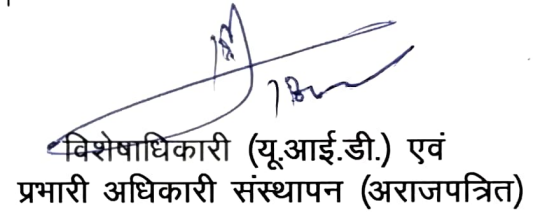 विशेषाधिकारी (यू.आई.डी.) एवं
प्रभारी अधिकारी संस्थापन (अराजपत्रित)